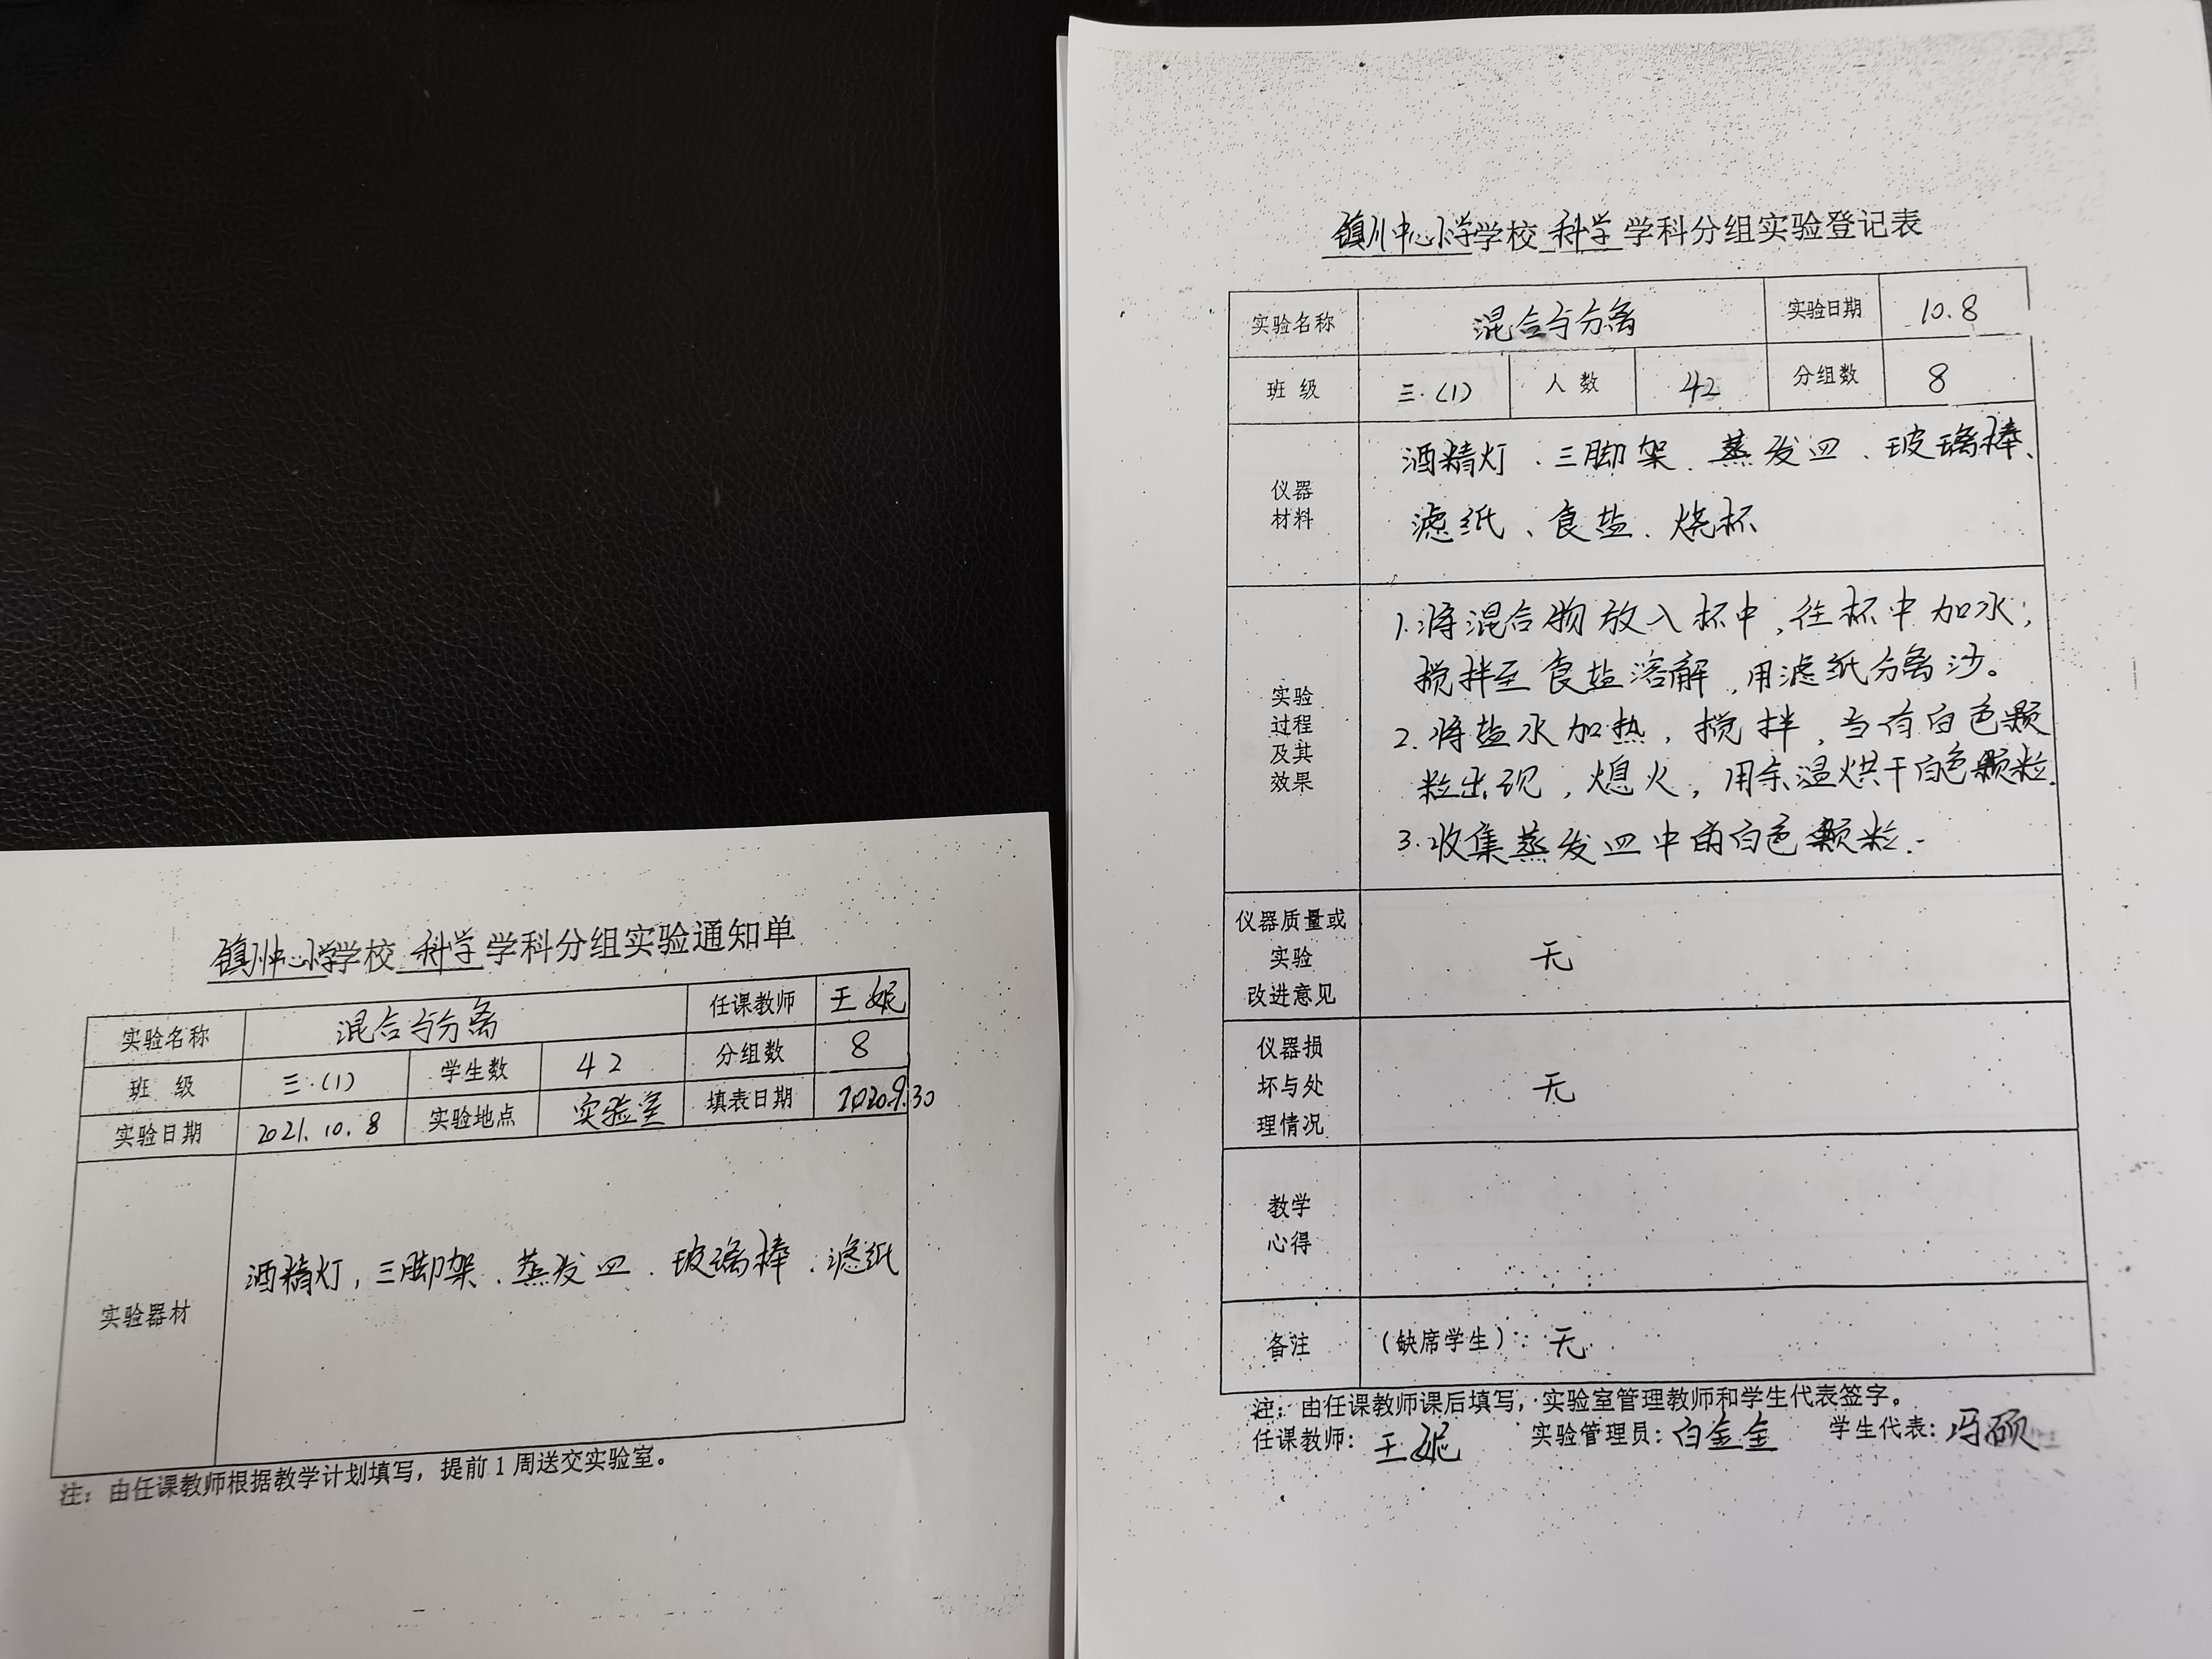 镇川中心小学学校 科学 学科分组实验通知单
实验名称 混合与分离 任课教师 王妮
班 级 三.(1) 学生数 42 分组数 8
实验日期 2021.10.8 实验地点 实验室 填表日期 2020.9.30
实验器材 酒精灯、三脚架、蒸发皿、玻璃棒、滤纸
注：由任课教师根据教学计划填写，提前1周送交实验室。
镇川中心小学学校 科学 学科分组实验登记表
实验名称 混合与分离 实验日期 10.8
班 级 三.(1) 人 数 42 分组数 8
仪器
材料
酒精灯、三脚架、蒸发皿、玻璃棒、
滤纸、食盐、烧杯
实验
过程
及其
效果
1.将混合物放入杯中，往杯中加水；
搅拌至食盐溶解，用滤纸分离沙。
2.将盐水加热，搅拌，当有白色颗
粒出现，熄火，用余温烘干白色颗粒.
3.收集蒸发皿中的白色颗粒.
仪器质量或
实验
改进意见
无
仪器损
坏与处
理情况
无
教学
心得
备注 （缺席学生）：无
注：由任课教师课后填写，实验室管理教师和学生代表签字。
任课教师：王妮 实验管理员：白金金 学生代表：冯硕